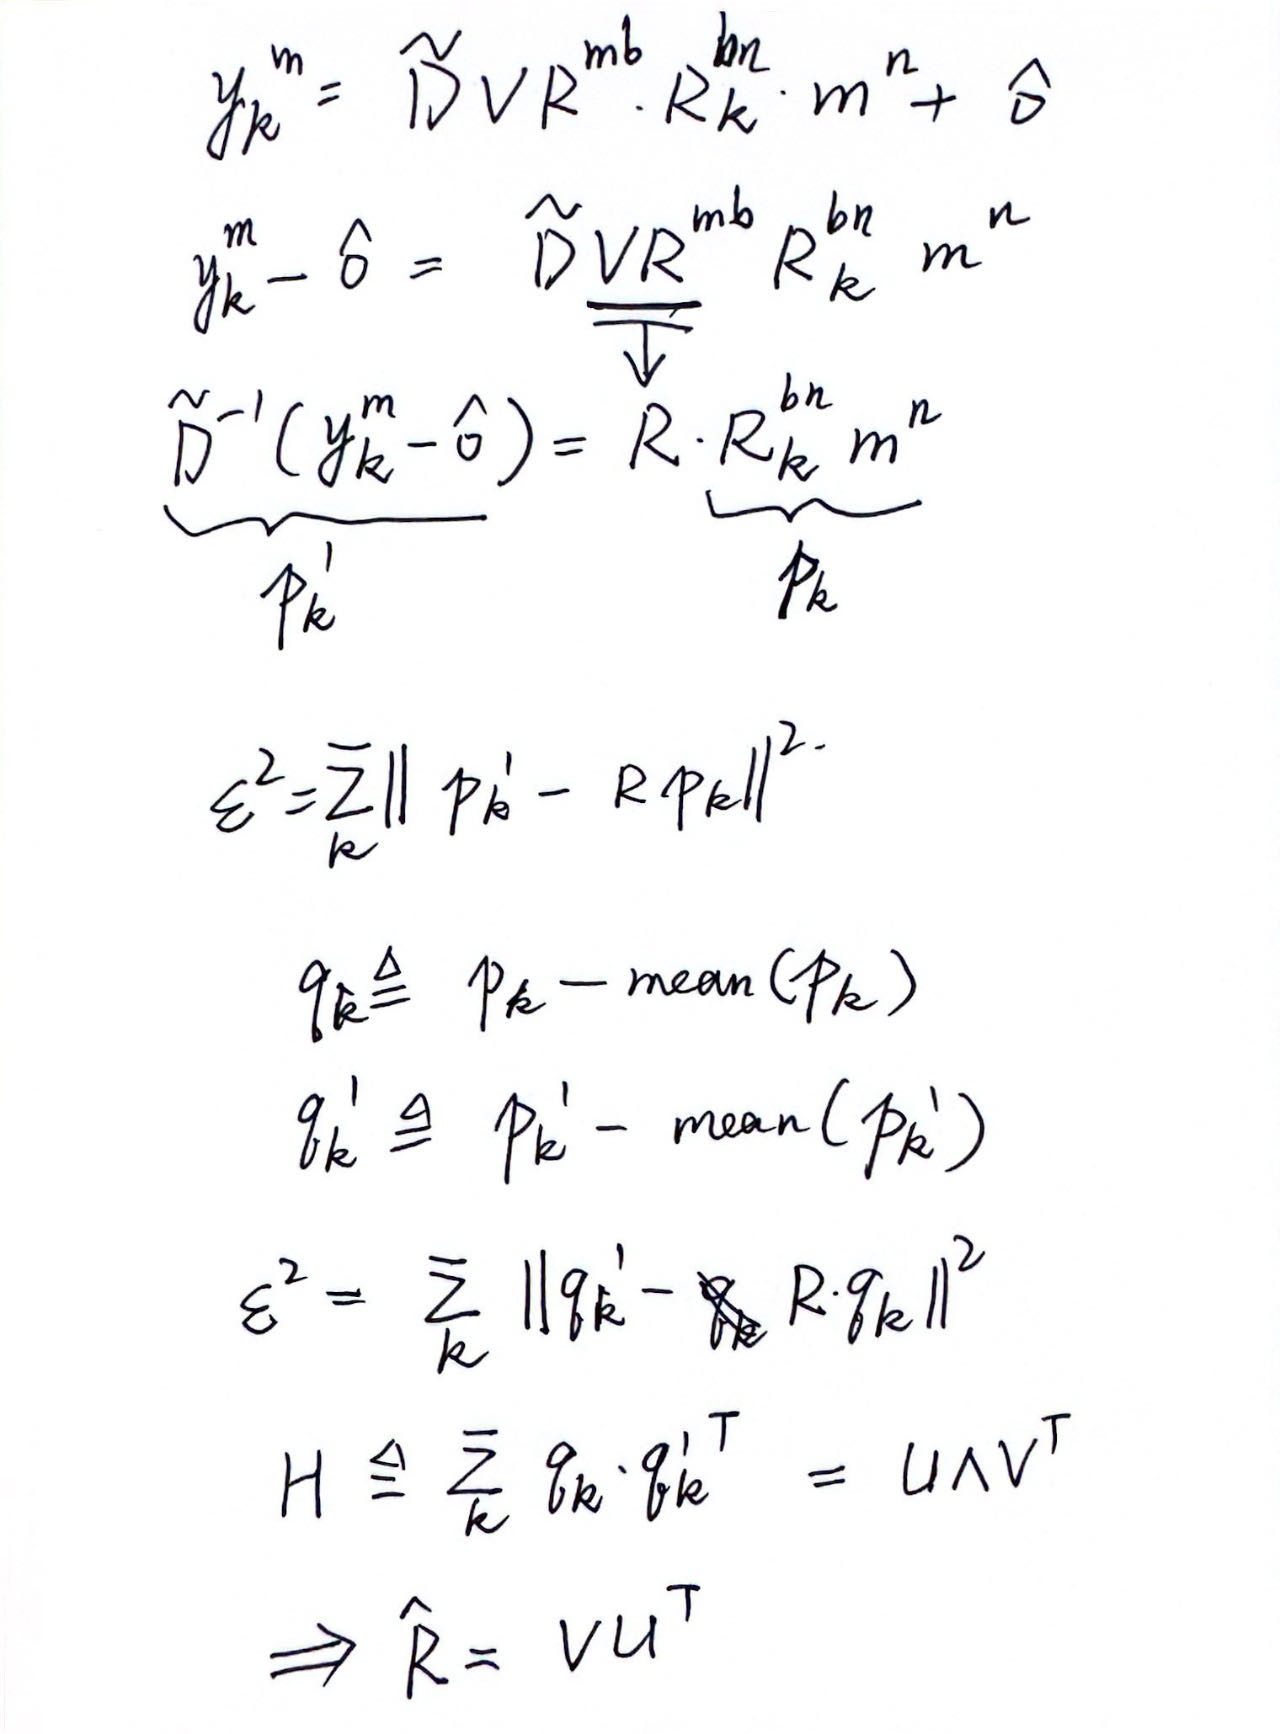 y_k^m = D̃VR^{mb} · R_k^{bn} · m^n + ô
y_k^m - ô = D̃VR^{mb} R_k^{bn} m^n
D̃^{-1}(y_k^m - ô) = R · R_k^{bn} m^n
p_k' p_k
ε^2 = Σ_k ‖ p_k' - R p_k ‖^2.
q_k ≜ p_k - mean(p_k)
q_k' ≜ p_k' - mean(p_k')
ε^2 = Σ_k ‖ q_k' - R · q_k ‖^2
H ≜ Σ_k q_k · q_k'^T = UΛV^T
⇒ R̂ = VU^T